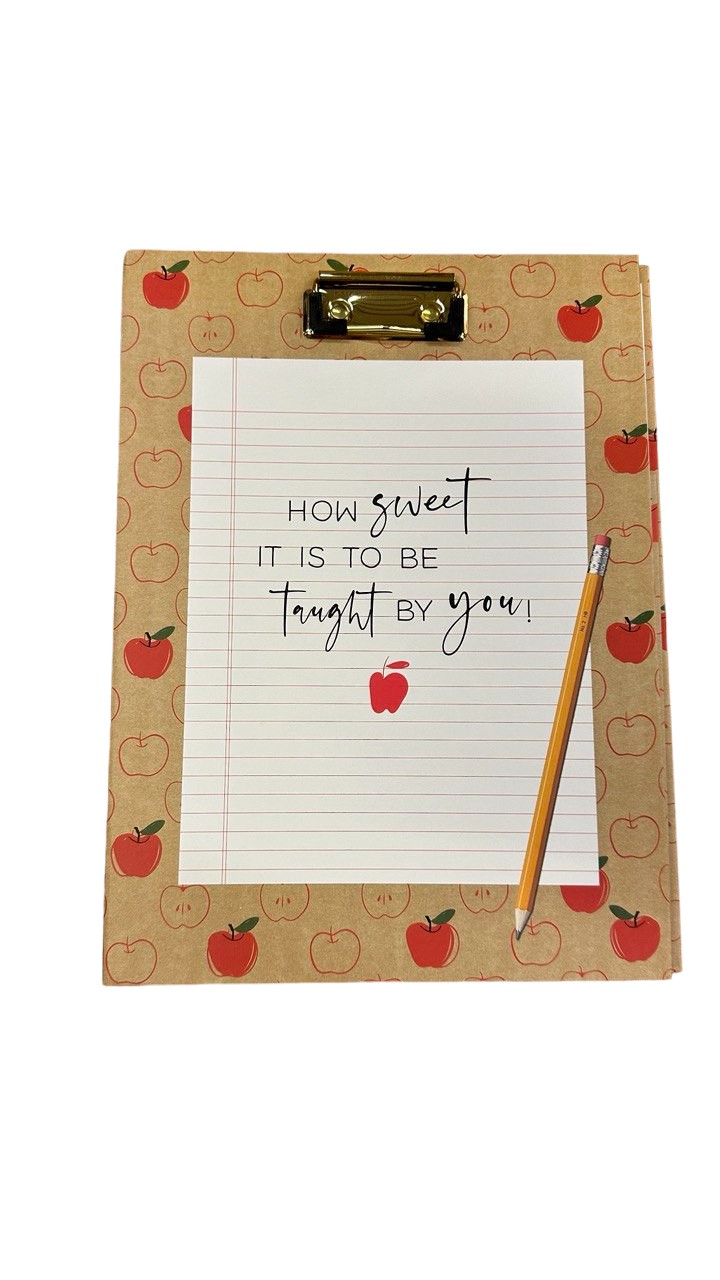 HOW sweet
IT IS TO BE
taught BY you!